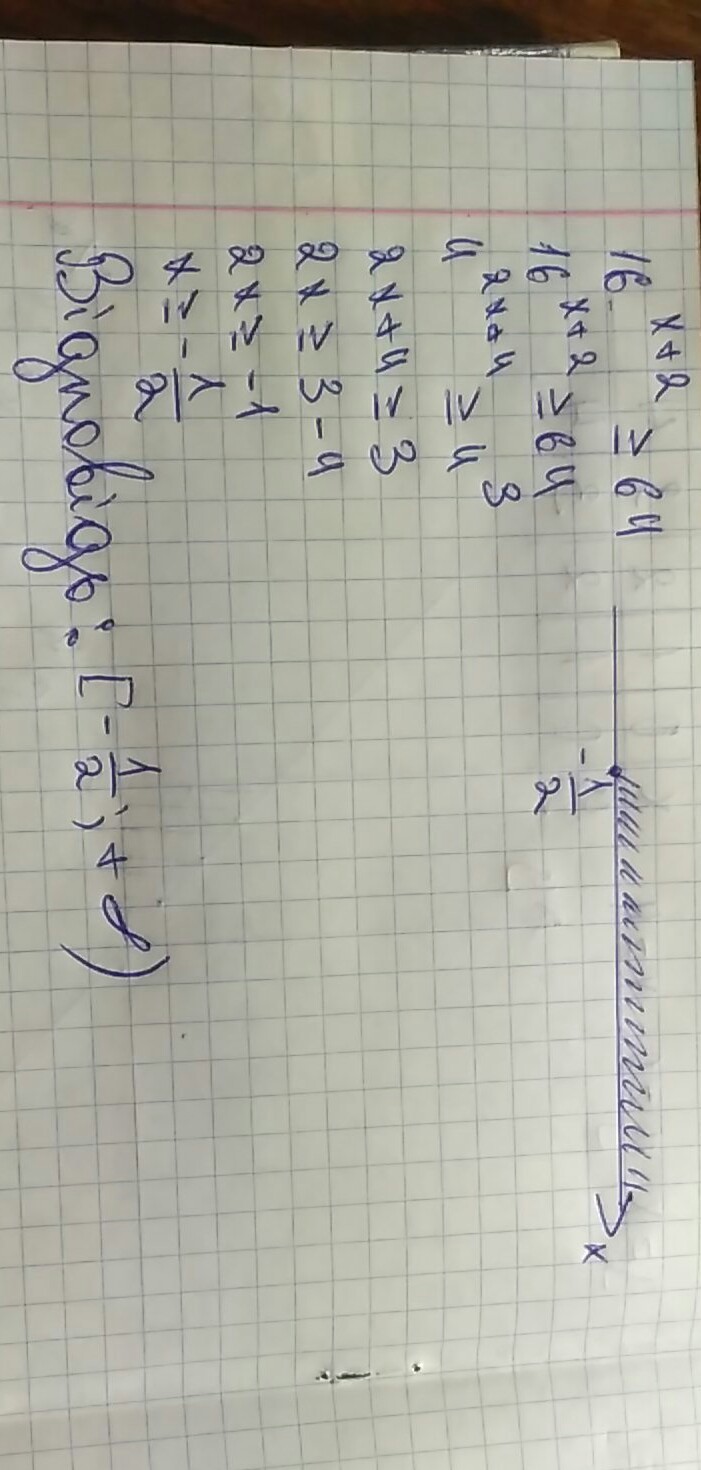 16^{x+2} ≥ 64
16^{x+2} ≥ 64
4^{2x+4} ≥ 4^3
2x+4 ≥ 3
2x ≥ 3-4
2x ≥ -1
x ≥ -1/2
Відповідь: [-1/2; +∞)
-1/2
x